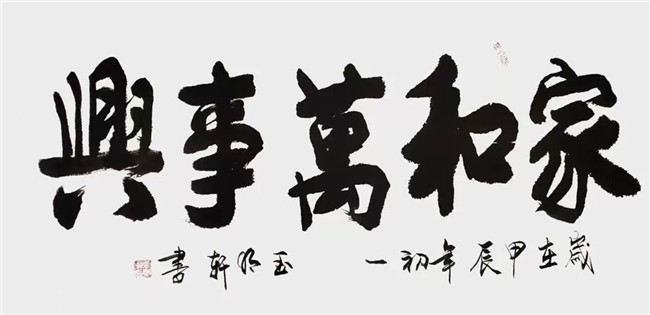 家和萬事興
歲在甲辰年初一 玉明軒書